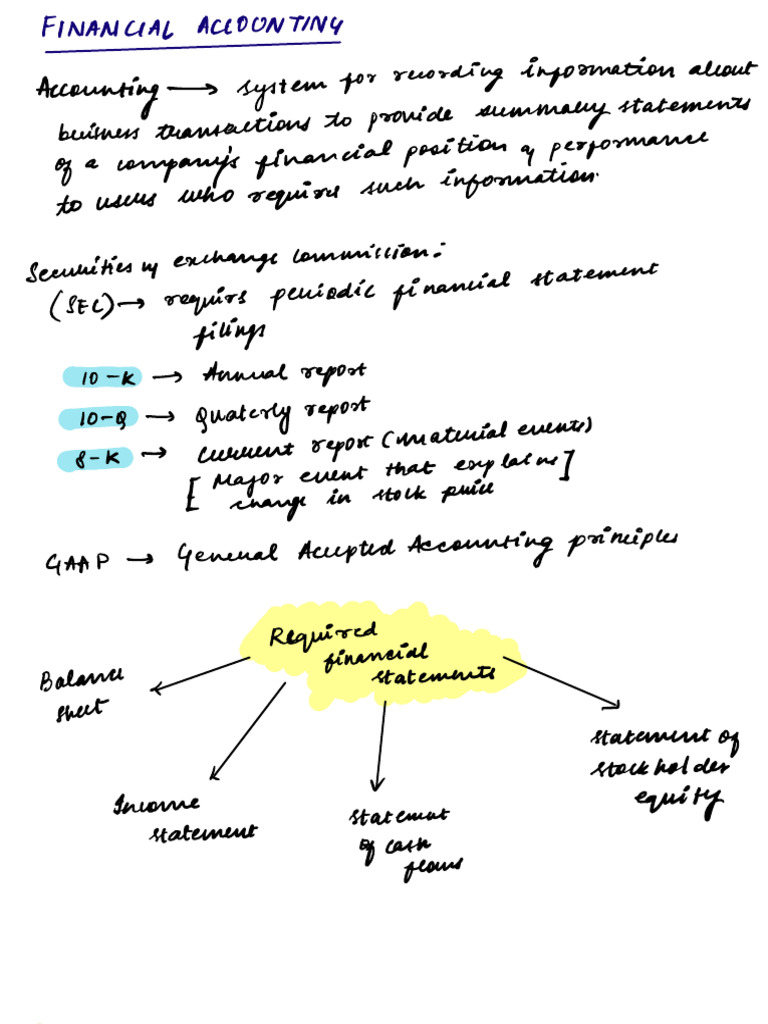 FINANCIAL ACCOUNTING
Accounting → system for recording information about
business transactions to provide summary statements
of a company's financial position & performance
to users who require such information.
Securities & exchange commission:
(SEC) → requirs periodic financial statement
filings
10-K → Annual report
10-Q → Quaterly report
8-K → Current report (material events)
[Major event that explains]
change in stock price
GAAP → General Accepted Accounting principles
Required
financial
statements
Balance
sheet
Income
statement
Statement
of cash
flows
Statement of
stockholder
equity